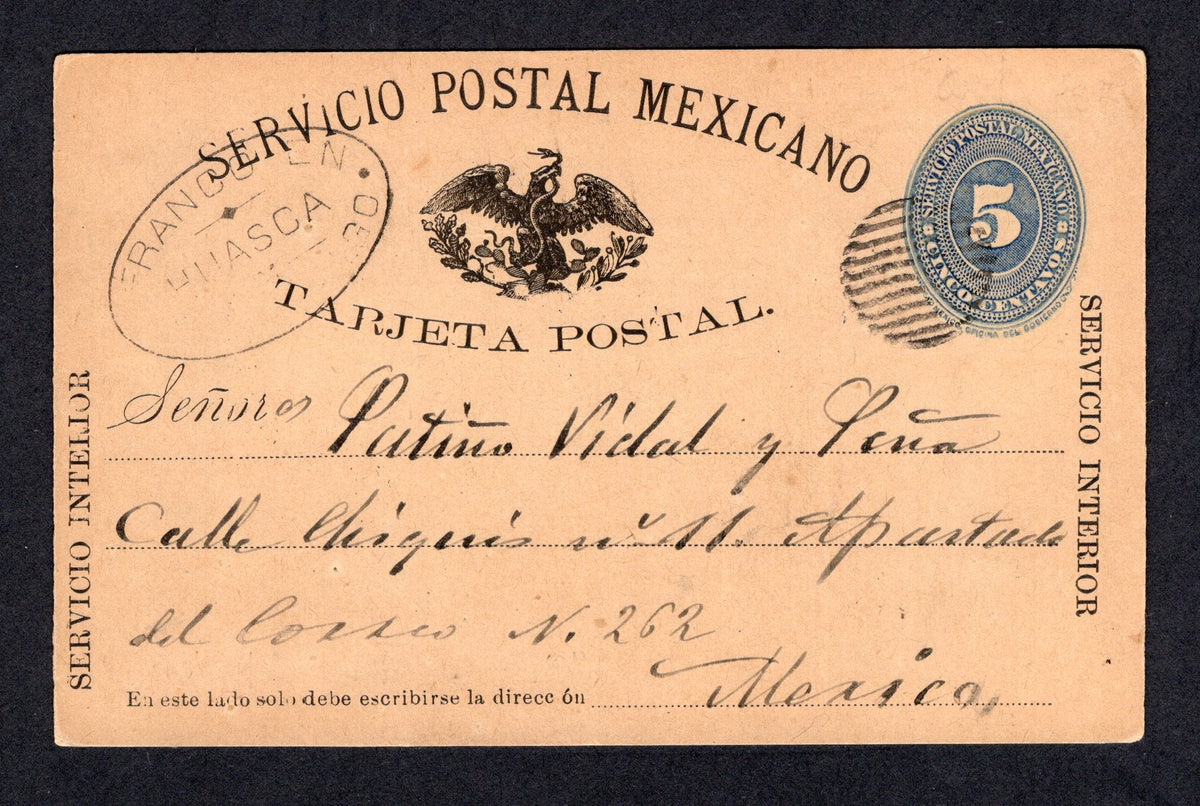 SERVICIO POSTAL MEXICANO
FRANCO EN
HUASCA
GO.
SERVICIO POSTAL MEXICANO
5
CINCO CENTAVOS
TARJETA POSTAL.
SERVICIO INTELIOR
SERVICIO INTERIOR
Señores Patiño Vidal y Peña
Calle Chiquis nº 11. Apartado
del Correo N. 262
Mexico,
En este lado solo debe escribirse la direcc ón